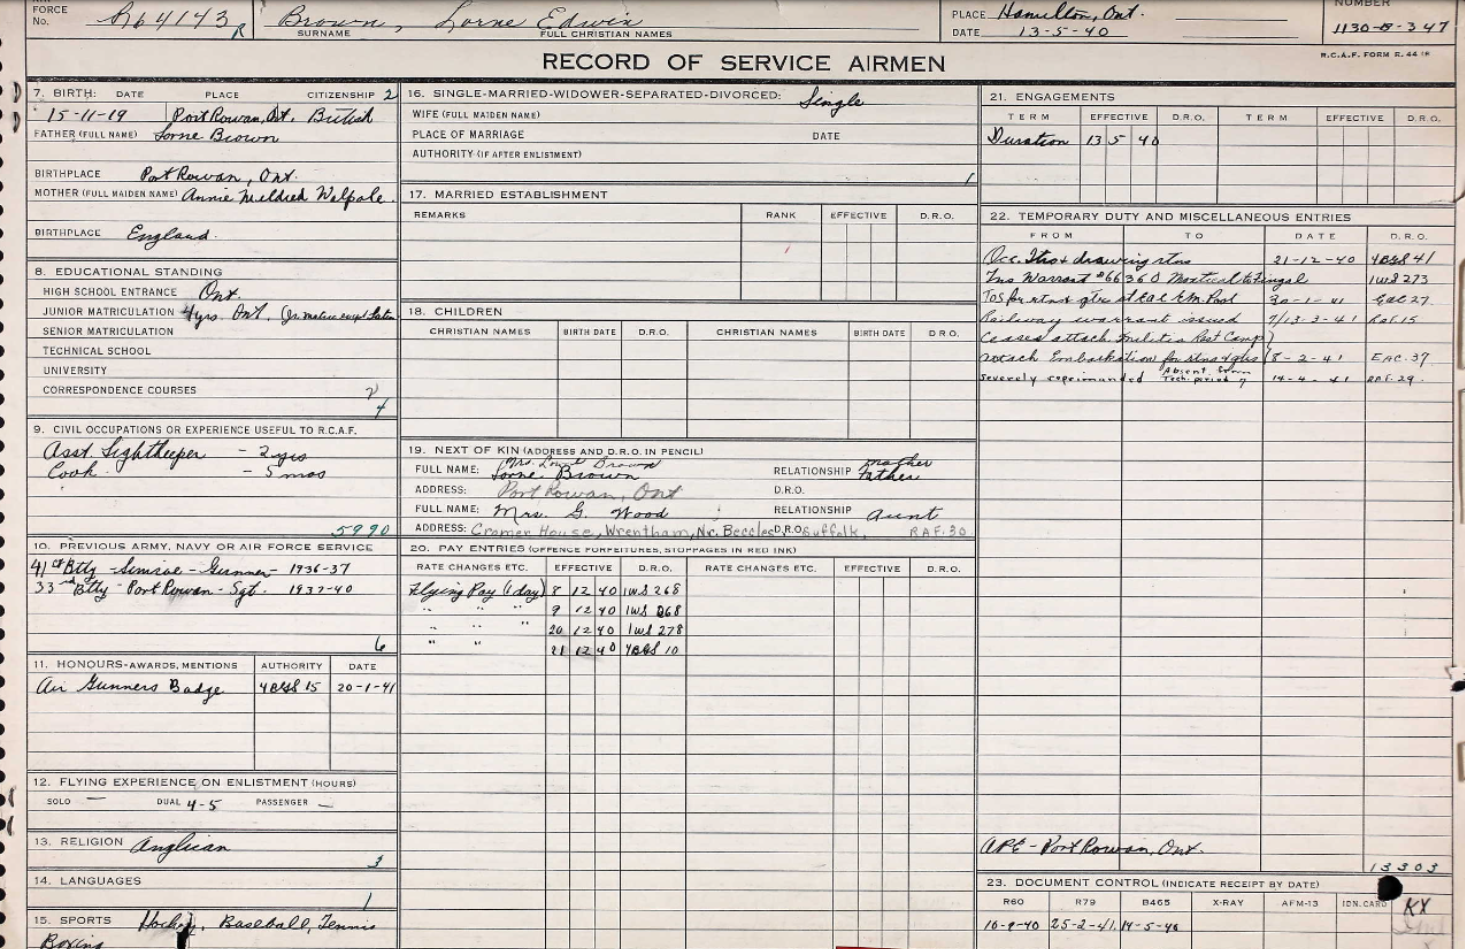 FORCE No. R64143 R Brown, Lorne Edwin
SURNAME FULL CHRISTIAN NAMES
PLACE Hamilton, Ont.
DATE 13-5-40
NUMBER
1130-B-347
R.C.A.F. FORM R. 44
RECORD OF SERVICE AIRMEN
7. BIRTH: DATE PLACE CITIZENSHIP 2
15-11-19 Port Rowan, Ont. British
FATHER (FULL NAME) Lorne Brown
BIRTHPLACE Port Rowan, Ont.
MOTHER (FULL MAIDEN NAME) Annie Mildred Walpole.
BIRTHPLACE England.
8. EDUCATIONAL STANDING
HIGH SCHOOL ENTRANCE Ont.
JUNIOR MATRICULATION 4yrs. Ont. (Jr. matric except Latin
SENIOR MATRICULATION
TECHNICAL SCHOOL
UNIVERSITY
CORRESPONDENCE COURSES
4
9. CIVIL OCCUPATIONS OR EXPERIENCE USEFUL TO R.C.A.F.
Asst. Lightkeeper - 2 yrs
Cook - 5 mos
5990
10. PREVIOUS ARMY, NAVY OR AIR FORCE SERVICE
41st Btty - Simcoe - Gunner - 1936-37
33rd Btty - Port Rowan - Sgt. 1937-40
6
11. HONOURS-AWARDS, MENTIONS AUTHORITY DATE
Air Gunners Badge 4B&GS 15 20-1-41
12. FLYING EXPERIENCE ON ENLISTMENT (HOURS)
SOLO — DUAL 4-5 PASSENGER —
13. RELIGION Anglican
3
14. LANGUAGES
1
15. SPORTS Hockey, Baseball, Tennis
Boxing
16. SINGLE-MARRIED-WIDOWER-SEPARATED-DIVORCED: Single
WIFE (FULL MAIDEN NAME)
PLACE OF MARRIAGE DATE
AUTHORITY (IF AFTER ENLISTMENT)
1
17. MARRIED ESTABLISHMENT
REMARKS RANK EFFECTIVE D.R.O.
18. CHILDREN
CHRISTIAN NAMES BIRTH DATE D.R.O. CHRISTIAN NAMES BIRTH DATE D.R.O.
19. NEXT OF KIN (ADDRESS AND D.R.O. IN PENCIL)
Mrs. Brown mother
FULL NAME: Lorne Brown RELATIONSHIP Father
ADDRESS: Port Rowan, Ont D.R.O.
FULL NAME: Mrs. G. Wood RELATIONSHIP Aunt
ADDRESS: Cromer House, Wrentham, Nr. Beccles D.R.O. Suffolk. RAF.30
20. PAY ENTRIES (OFFENCE FORFEITURES, STOPPAGES IN RED INK)
RATE CHANGES ETC. EFFECTIVE D.R.O. RATE CHANGES ETC. EFFECTIVE D.R.O.
Flying Pay (1 day) 8 12 40 1WS 268
" " " 9 12 40 1WS 268
" " " 20 12 40 1WS 278
" " 21 12 40 4B&GS 10
21. ENGAGEMENTS
TERM EFFECTIVE D.R.O. TERM EFFECTIVE D.R.O.
Duration 13 5 40
22. TEMPORARY DUTY AND MISCELLANEOUS ENTRIES
FROM TO DATE D.R.O.
Occ. & drawing rtns 21-12-40 4B&GS 41
Warrant #66360 Montreal to Fingal 1WS 273
TOS for rtns & qtrs at EAC KM Pool 30-1-41 EAC 27
Railway warrant issued 7/13-3-41 RAF.15
Ceases attach. Militia Rest Camp)
attach Embarkation for rtns & qtrs (8-2-41 EAC.37
severely reprimanded Absent from Tech. period 7 14-4-41 RAF.29.
APE - Port Rowan, Ont.
13303
23. DOCUMENT CONTROL (INDICATE RECEIPT BY DATE)
R60 R79 B465 X-RAY AFM-13 IDN. CARD KX
16-9-40 25-2-41 14-5-40